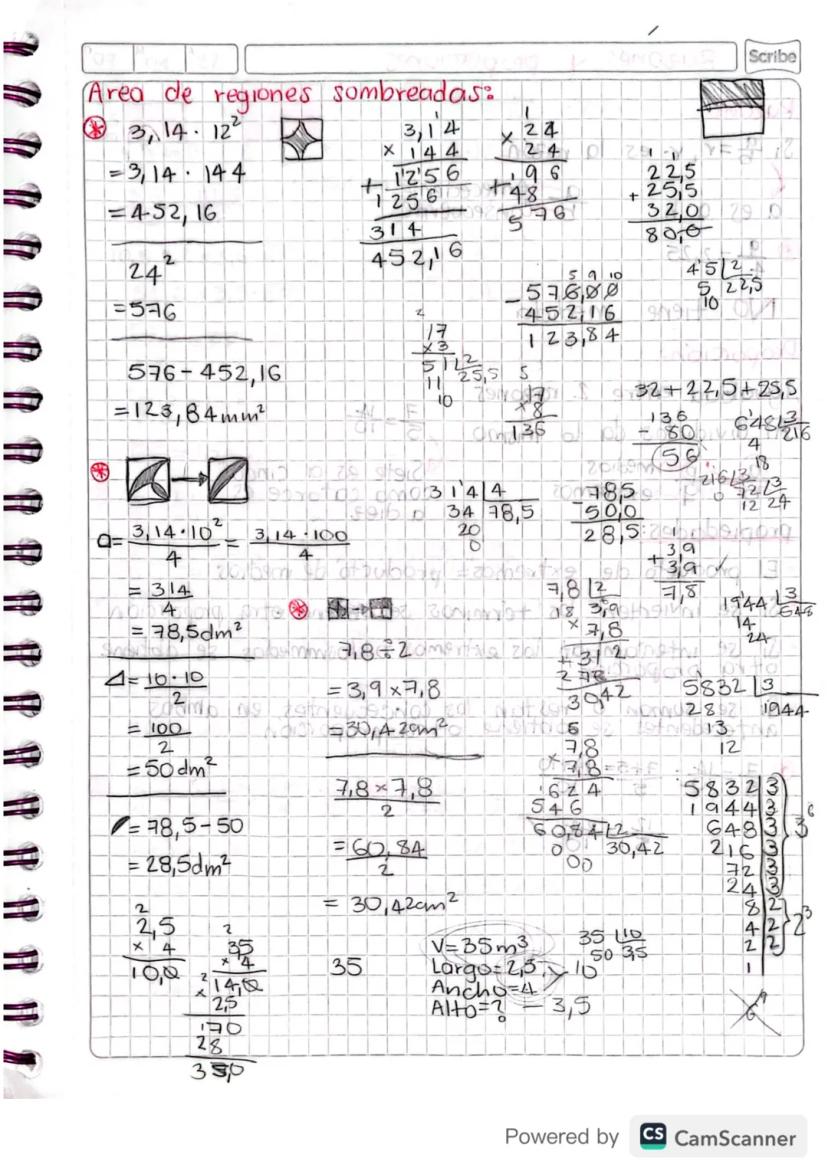 Scribe
Area de regiones sombreadas:
3,14 · 12²
= 3,14 · 144
= 452,16
24²
= 576
576 - 452,16
= 123,84 mm²
3,14
× 144
1256
+ 1256
314
452,16
24
× 24
96
+ 48
576
22,5
+ 25,5
32,0
80,0
45 |2
5 22,5
10
576,00
- 452,16
123,84
17
× 3
51 |2
11 25,5
10
17
× 8
136
32 + 22,5 + 25,5
136
- 80
56
648 |3
4 216
18
216 |3
0 72 |3
12 24
a = 3,14 · 10² / 4 = 3,14 · 100 / 4
= 314 / 4
= 78,5 dm²
314 |4
34 78,5
20
0
78,5
- 50,0
28,5
3,9
+ 3,9
7,8
= 10 · 10 / 2
= 100 / 2
= 50 dm²
= 78,5 - 50
= 28,5 dm²
7,8 ÷ 2
= 3,9 × 7,8
= 30,42 cm²
7,8 × 7,8 / 2
= 60,84 / 2
= 30,42 cm²
7,8 |2
18 3,9
× 7,8
+ 312
273
30,42
7,8
× 7,8
624
546
60,84 |2
0 30,42
00
1944 |3
14 648
24
5832 |3
28 1944
13
12
5832 | 3
1944 | 3
648 | 3
216 | 3
72 | 3
24 | 3
3⁶
8 | 2
4 | 2
2 | 2
1
2³
2,5
× 4
10,0
35
× 4
14,0
× 2,5
170
28
35,0
35
V = 35 m³
Largo = 2,5
10
Ancho = 4
Alto = ? - 3,5
35 |10
50 3,5
Powered by CS CamScanner